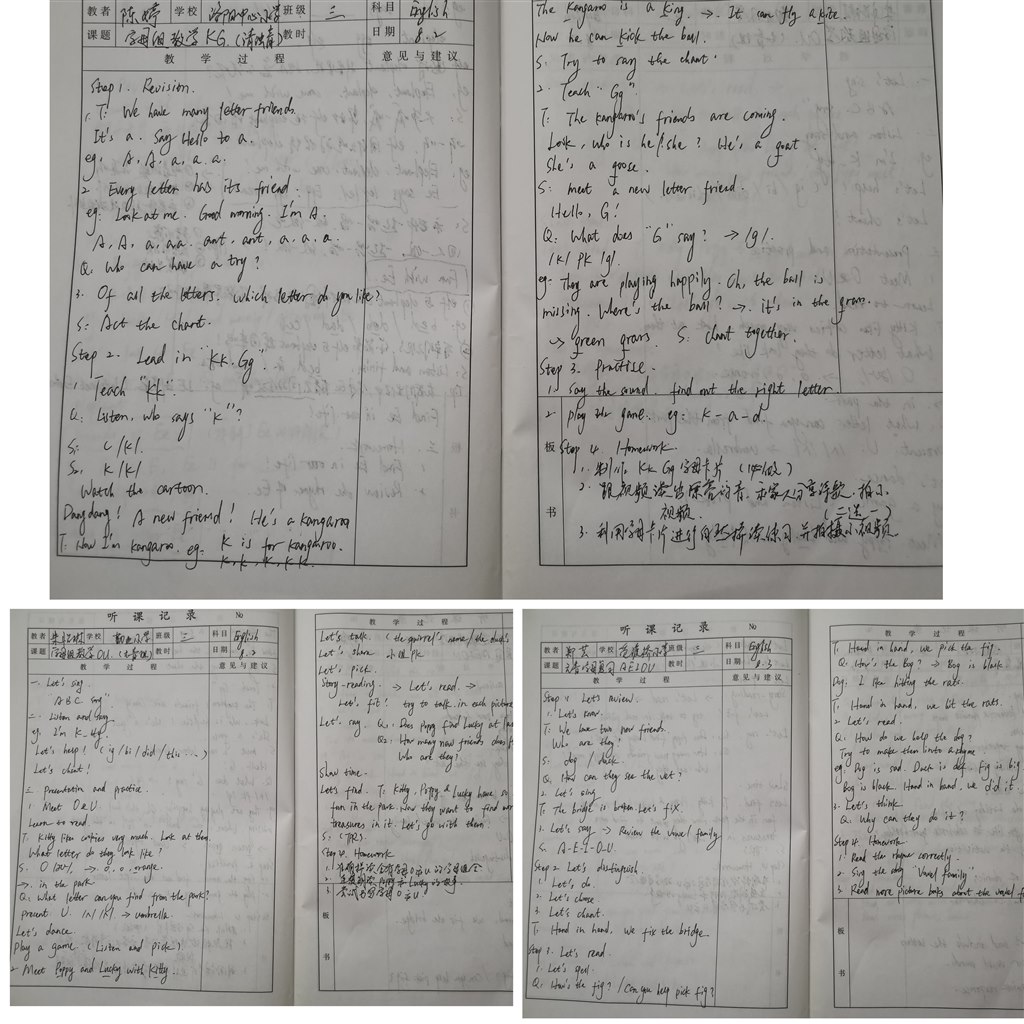 教者 陈婷 学校 洛阳中心小学 班级 三 科目 English
课题 字母组教学 KG (清浊音) 教时 日期 8.2
教 学 过 程 意见与建议
Step 1. Revision.
1. T: We have many letter friends.
It's a. Say Hello to a.
eg: A, A, a, a, a.
2. Every letter has its friend.
eg: Look at me. Good morning. I'm A.
A, A, a, a, a. ant, ant, a, a, a.
Q: Who can have a try?
3. Of all the letters. which letter do you like?
S: Act the chant.
Step 2. Lead in "Kk. Gg".
1. Teach "Kk".
Q: Listen, who says "k"?
S1: C /k/.
S2: K /k/
Watch the cartoon.
Dang dang! A new friend! He's a kangaroo
T: Now I'm kangaroo. eg: K is for kangaroo.
k, k, k, k, k.
The kangaroo is a king. → It can fly a kite.
Now he can kick the ball.
S: Try to say the chant.
2. Teach "Gg"
T: The kangaroo's friends are coming.
Look, who is he/she? He's a goat.
She's a goose.
S: meet a new letter friend.
Hello, G!
Q: What does "G" say? → /g/.
/k/ PK /g/.
eg: They are playing happily. Oh, the ball is
missing. Where's the ball? → It's in the grass.
→ green grass. S: chant together.
Step 3. Practise.
1. say the sound. find out the right letter.
2. play the game. eg: k - a - d.
板 书
Step 4. Homework.
1. 制作 Kk Gg 字母卡片
2. 跟视频读出 拍小
视频. (二选一)
3. 利用字母卡片进行自然拼读练习, 并拍摄小视频.
听 课 记 录 No
教者 学校 小学 班级 三 科目 English
课题 字母组教学 OU (元音组) 教时 日期 8.2
教 学 过 程 意见与建议
一. Let's sing
"ABC song".
二. Listen and say
eg. I'm K
Let's help! (ig / bi / did / this ...)
Let's chant!
三. Presentation and practice.
1. Meet O & U
Learn to read.
T: Kitty likes very much. Look at them
What letter do they look like?
S: O → o, o, orange.
→ in the park
Q: What letter can you find from the park?
present U. /ʌ/ → umbrella.
Let's dance.
Play a game. (Listen and pick)
2. Meet Poppy and Lucky with Kitty.
教 学 过 程
Let's talk. (the squirrel's name / the duck's
Let's share 小组PK
Let's pick.
Story-reading. → Let's read. →
Let's fit! try to talk in each picture
Let's say. Q1: Does Poppy find Lucky at last
Q2: How many new friends does
Who are they?
Show time.
Let's find. T: Kitty, Poppy & Lucky have
fun in the park. Now they want to find
treasures in it. Let's go with them.
S:
Step 4. Homework
1. 准确拼读含有字母O和U的字母组合
2. Lucky的故事.
3. 尝试书写字母O和U
板 书
听 课 记 录 No
教者 郭艾 学校 小学 班级 三 科目 English
课题 元音字母复习 AEIOU 教时 日期 8.3
教 学 过 程 意见与建议
Step 1. Let's review.
1. Let's know.
T: We have two new friends.
Who are they?
S: dog / duck.
Q: How can they see the vet?
2. Let's sing.
T: The bridge is broken. Let's fix.
3. Let's say → Review the vowel family
S: A-E-I-O-U.
Step 2. Let's distinguish.
1. Let's do.
2. Let's choose.
3. Let's chant.
T: Hand in hand, we fix the bridge.
Step 3. Let's read.
1. Let's
Q: How's the fig? / Can you help pick fig?
教 学 过 程
T: Hand in hand, we pick the fig.
Q: How's the Bog? → Bog is black.
Dog: I like hitting the rats.
T: Hand in hand, we hit the rats.
2. Let's read.
Q: How do we help the dog?
Try to make them into a rhyme
eg: Dog is sad. Duck is Fig is big.
Bog is black. Hand in hand, we did it.
3. Let's think.
Q: Why can they do it?
Step 4. Homework.
1. Read the rhyme correctly.
2. Sing the song "Vowel family".
3. Read more picture books about the vowel
板 书